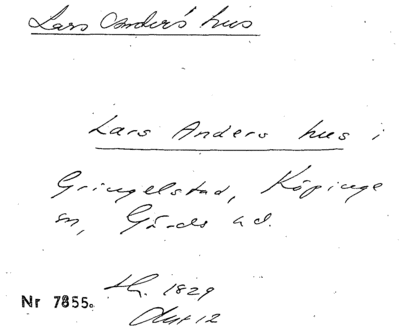 Lars Anders hus
Lars Anders hus i
Gringelstad, Köpinge
sn, Gärds hd.
1829
Nr 7855.
12